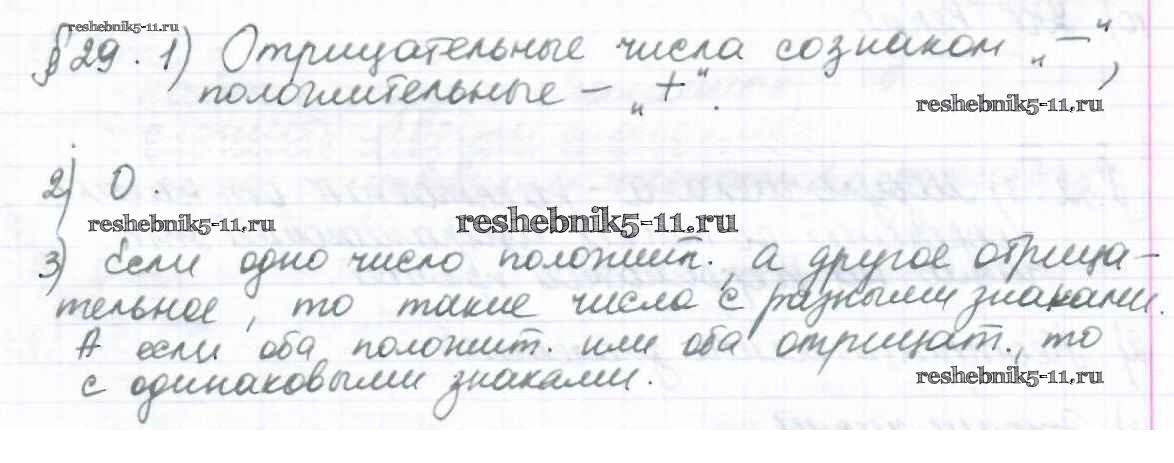 reshebnik5-11.ru
§ 29. 1) Отрицательные числа со знаком „—“,
положительные – „+“.
reshebnik5-11.ru
2) 0.
reshebnik5-11.ru
reshebnik5-11.ru
3) Если одно число положит., а другое отрица-
тельное, то такие числа с разными знаками.
А если оба положит. или оба отрицат., то
с одинаковыми знаками.
reshebnik5-11.ru